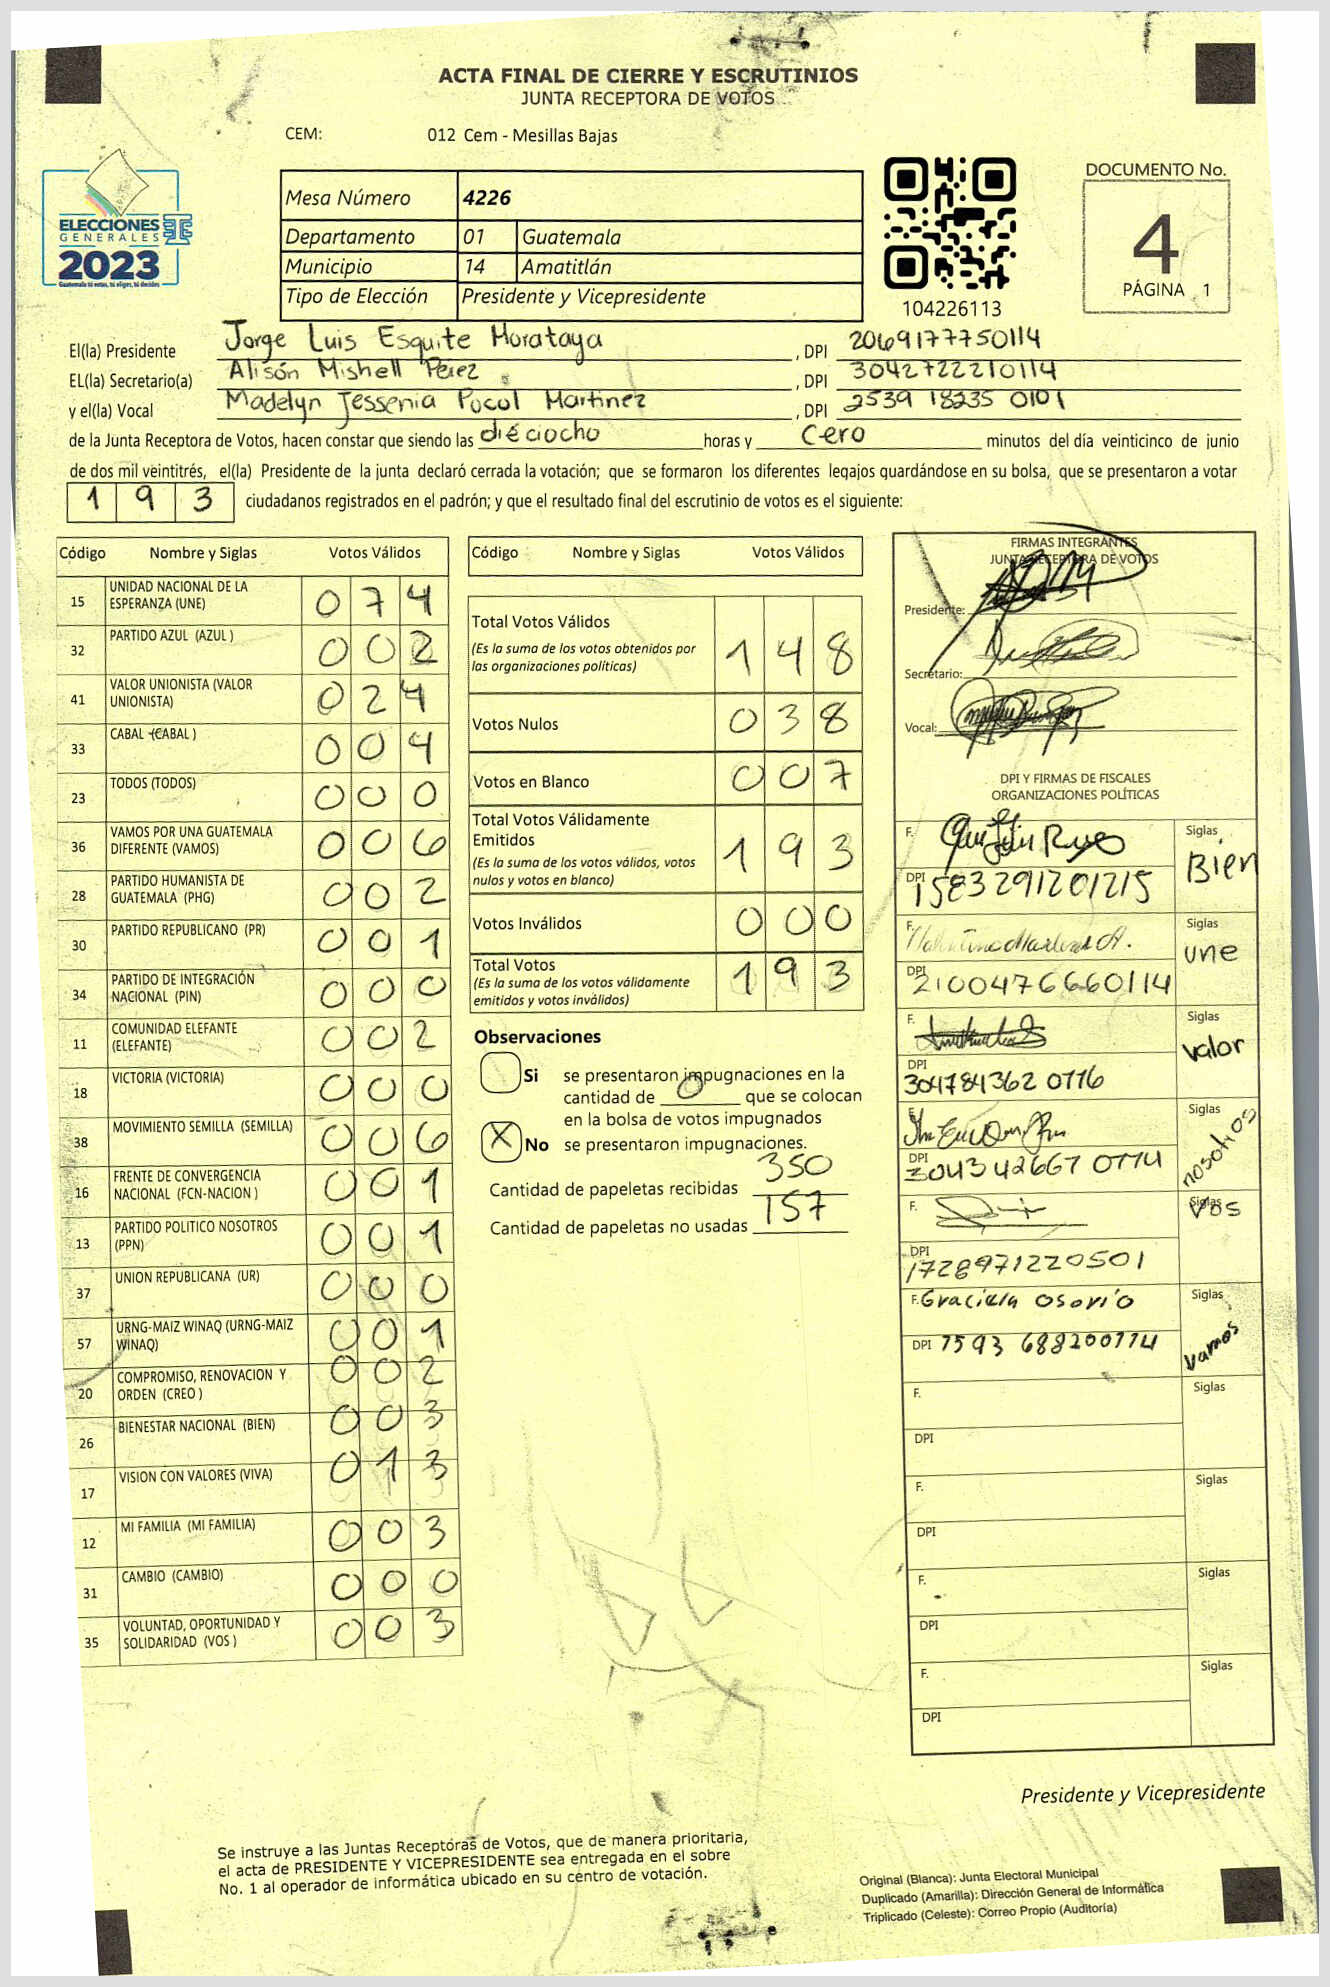 ACTA FINAL DE CIERRE Y ESCRUTINIOS
JUNTA RECEPTORA DE VOTOS
CEM: 012 Cem - Mesillas Bajas
DOCUMENTO No.
4
PÁGINA 1
ELECCIONES
GENERALES
2023
Guatemala tú votas, tú eliges, tú decides
Mesa Número 4226
Departamento 01 Guatemala
Municipio 14 Amatitlán
Tipo de Elección Presidente y Vicepresidente
104226113
El(la) Presidente Jorge Luis Esquite Morataya , DPI 2069177750114
EL(la) Secretario(a) Alisón Mishell Pérez , DPI 3042722210114
y el(la) Vocal Madelyn Jessenia Pocol Martinez , DPI 2539 18235 0101
de la Junta Receptora de Votos, hacen constar que siendo las dieciocho horas y cero minutos del día veinticinco de junio
de dos mil veintitrés, el(la) Presidente de la junta declaró cerrada la votación; que se formaron los diferentes legajos guardándose en su bolsa, que se presentaron a votar
193 ciudadanos registrados en el padrón; y que el resultado final del escrutinio de votos es el siguiente:
Código Nombre y Siglas Votos Válidos
15 UNIDAD NACIONAL DE LA ESPERANZA (UNE) 074
32 PARTIDO AZUL (AZUL ) 002
41 VALOR UNIONISTA (VALOR UNIONISTA) 024
33 CABAL (CABAL ) 004
23 TODOS (TODOS) 000
36 VAMOS POR UNA GUATEMALA DIFERENTE (VAMOS) 006
28 PARTIDO HUMANISTA DE GUATEMALA (PHG) 002
30 PARTIDO REPUBLICANO (PR) 001
34 PARTIDO DE INTEGRACIÓN NACIONAL (PIN) 000
11 COMUNIDAD ELEFANTE (ELEFANTE) 002
18 VICTORIA (VICTORIA) 000
38 MOVIMIENTO SEMILLA (SEMILLA) 006
16 FRENTE DE CONVERGENCIA NACIONAL (FCN-NACION ) 001
13 PARTIDO POLITICO NOSOTROS (PPN) 001
37 UNION REPUBLICANA (UR) 000
57 URNG-MAIZ WINAQ (URNG-MAIZ WINAQ) 001
20 COMPROMISO, RENOVACION Y ORDEN (CREO ) 002
26 BIENESTAR NACIONAL (BIEN) 003
17 VISION CON VALORES (VIVA) 013
12 MI FAMILIA (MI FAMILIA) 003
31 CAMBIO (CAMBIO) 000
35 VOLUNTAD, OPORTUNIDAD Y SOLIDARIDAD (VOS ) 003
Código Nombre y Siglas Votos Válidos
Total Votos Válidos 148
(Es la suma de los votos obtenidos por
las organizaciones políticas)
Votos Nulos 038
Votos en Blanco 007
Total Votos Válidamente
Emitidos 193
(Es la suma de los votos válidos, votos
nulos y votos en blanco)
Votos Inválidos 000
Total Votos 193
(Es la suma de los votos válidamente
emitidos y votos inválidos)
Observaciones
Si se presentaron impugnaciones en la
cantidad de 0 que se colocan
en la bolsa de votos impugnados
X No se presentaron impugnaciones.
Cantidad de papeletas recibidas 350
Cantidad de papeletas no usadas 157
FIRMAS INTEGRANTES
JUNTA RECEPTORA DE VOTOS
Presidente:
Secretario:
Vocal:
DPI Y FIRMAS DE FISCALES
ORGANIZACIONES POLÍTICAS
F. Siglas
Bien
DPI 1583291201215
F. Siglas
une
DPI 2100476660114
F. Siglas
valor
DPI 304784362 0116
F. Siglas
nosotros
DPI 304342667 0114
F. Siglas
Vos
DPI 1728971220501
F. Graciela Osorio Siglas
vamos
DPI 1593 688200114
F. Siglas
DPI
F. Siglas
DPI
F. Siglas
DPI
F. Siglas
DPI
Presidente y Vicepresidente
Se instruye a las Juntas Receptoras de Votos, que de manera prioritaria,
el acta de PRESIDENTE Y VICEPRESIDENTE sea entregada en el sobre
No. 1 al operador de informática ubicado en su centro de votación.
Original (Blanca): Junta Electoral Municipal
Duplicado (Amarilla): Dirección General de Informática
Triplicado (Celeste): Correo Propio (Auditoría)